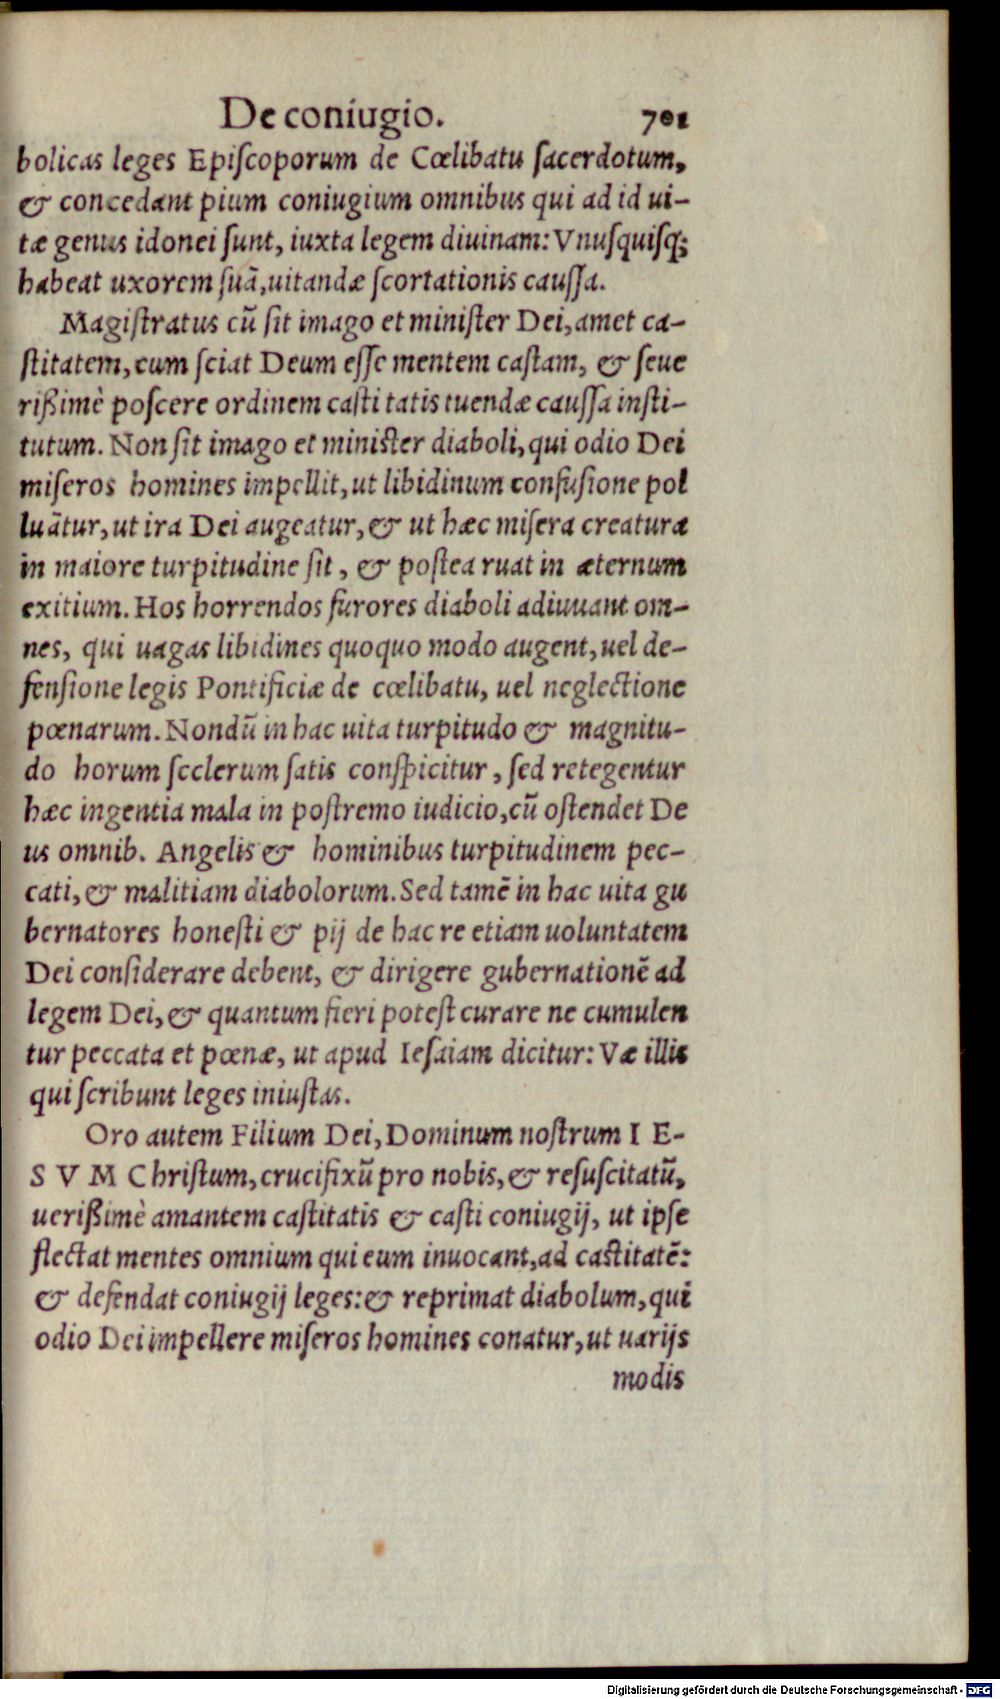 De coniugio. 701
bolicas leges Epiſcoporum de Cœlibatu ſacerdotum,
& concedant pium coniugium omnibus qui ad id ui-
tæ genus idonei ſunt, iuxta legem diuinam: Vnuſquiſq;
habeat uxorem ſuã, uitandæ ſcortationis cauſſa.
Magiſtratus cũ ſit imago et miniſter Dei, amet ca-
ſtitatem, cum ſciat Deum eſſe mentem caſtam, & ſeue
rißimè poſcere ordinem caſtitatis tuendæ cauſſa inſti-
tutum. Non ſit imago et miniſter diaboli, qui odio Dei
miſeros homines impellit, ut libidinum confuſione pol
luãtur, ut ira Dei augeatur, & ut hæc miſera creatura
in maiore turpitudine ſit, & poſtea ruat in æternum
exitium. Hos horrendos furores diaboli adiuuant om-
nes, qui uagas libidines quoquo modo augent, uel de-
fenſione legis Pontificiæ de cœlibatu, uel neglectione
pœnarum. Nondũ in hac uita turpitudo & magnitu-
do horum ſcelerum ſatis conſpicitur, ſed retegentur
hæc ingentia mala in poſtremo iudicio, cũ oſtendet De
us omnib. Angelis & hominibus turpitudinem pec-
cati, & malitiam diabolorum. Sed tamẽ in hac uita gu
bernatores honeſti & pij de hac re etiam uoluntatem
Dei conſiderare debent, & dirigere gubernationẽ ad
legem Dei, & quantum fieri poteſt curare ne cumulen
tur peccata et pœnæ, ut apud Ieſaiam dicitur: Væ illis
qui ſcribunt leges iniuſtas.
Oro autem Filium Dei, Dominum noſtrum I E-
S V M Chriſtum, crucifixũ pro nobis, & reſuſcitatũ,
uerißimè amantem caſtitatis & caſti coniugij, ut ipſe
flectat mentes omnium qui eum inuocant, ad caſtitatẽ:
& defendat coniugij leges: & reprimat diabolum, qui
odio Dei impellere miſeros homines conatur, ut uarijs
modis
Digitalisierung gefördert durch die Deutsche Forschungsgemeinschaft - DFG